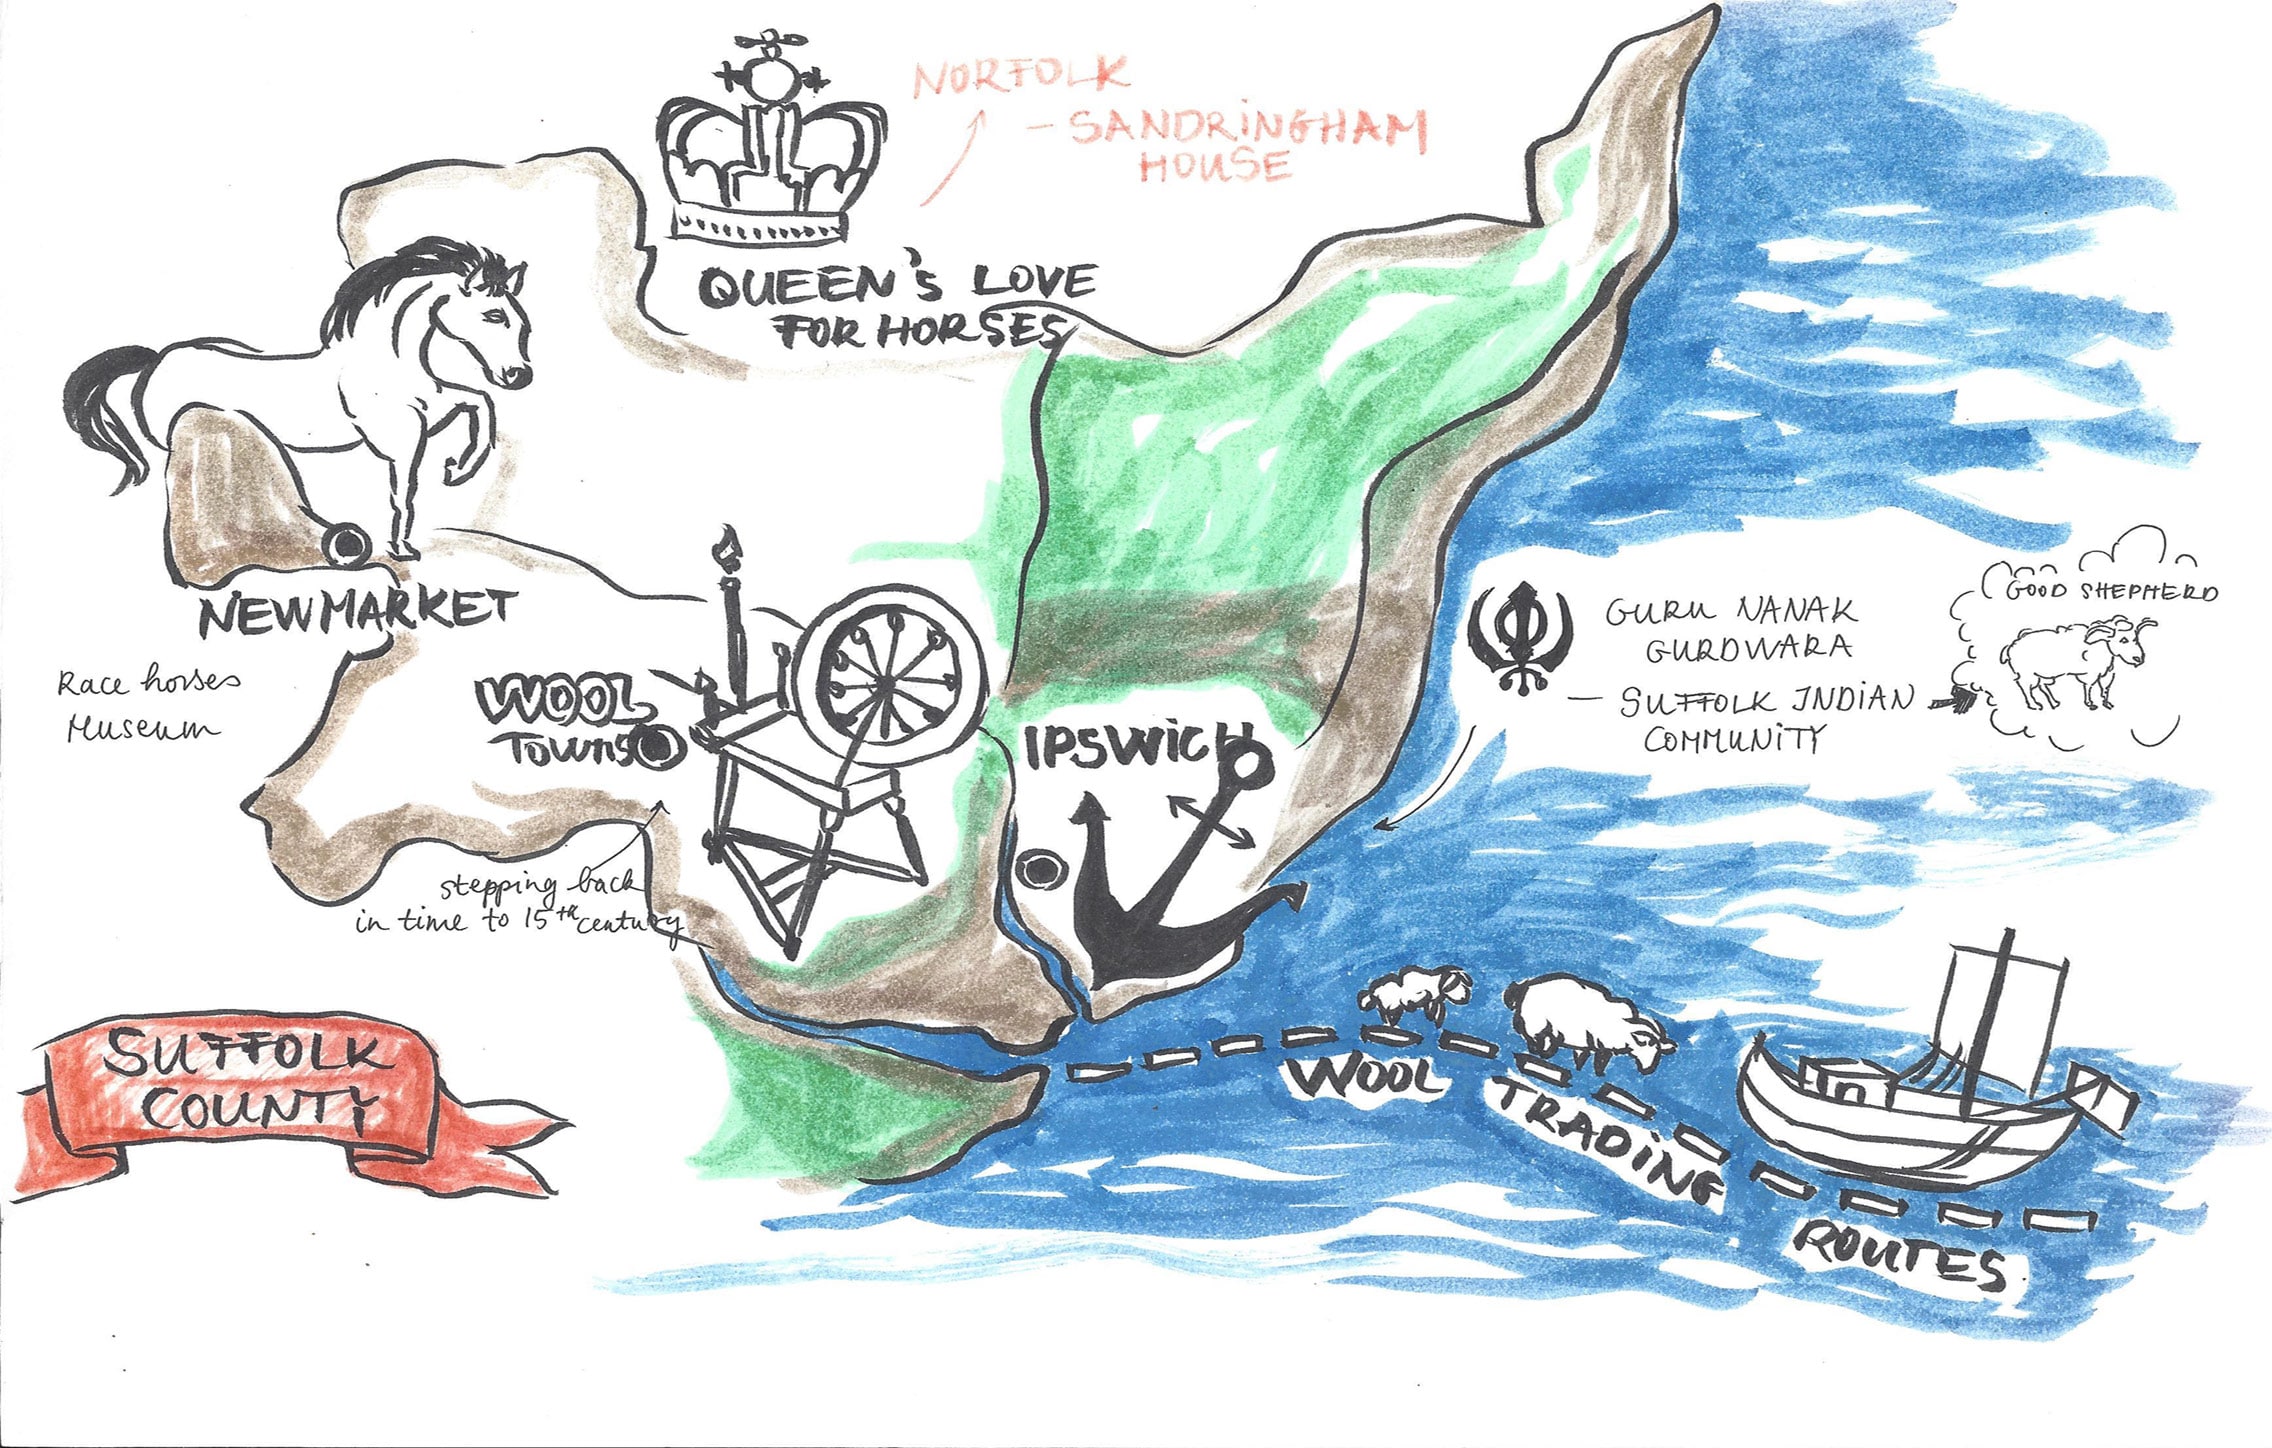 NORFOLK
- SANDRiNGHAM
HOUSE
QUEEN's LOVE
FOR HORSES
NEWMARKET
Race horses
Museum
WOOL
Towns
IPSWicH
GURU NANAK
GURDWARA
- SUFFOLK INDiAN
COMMUNiTY
GOOD SHEPHERD
stepping back
in time to 15th century
SUFFOLK
COUNTY
WOOL
TRADiNG
ROUTES